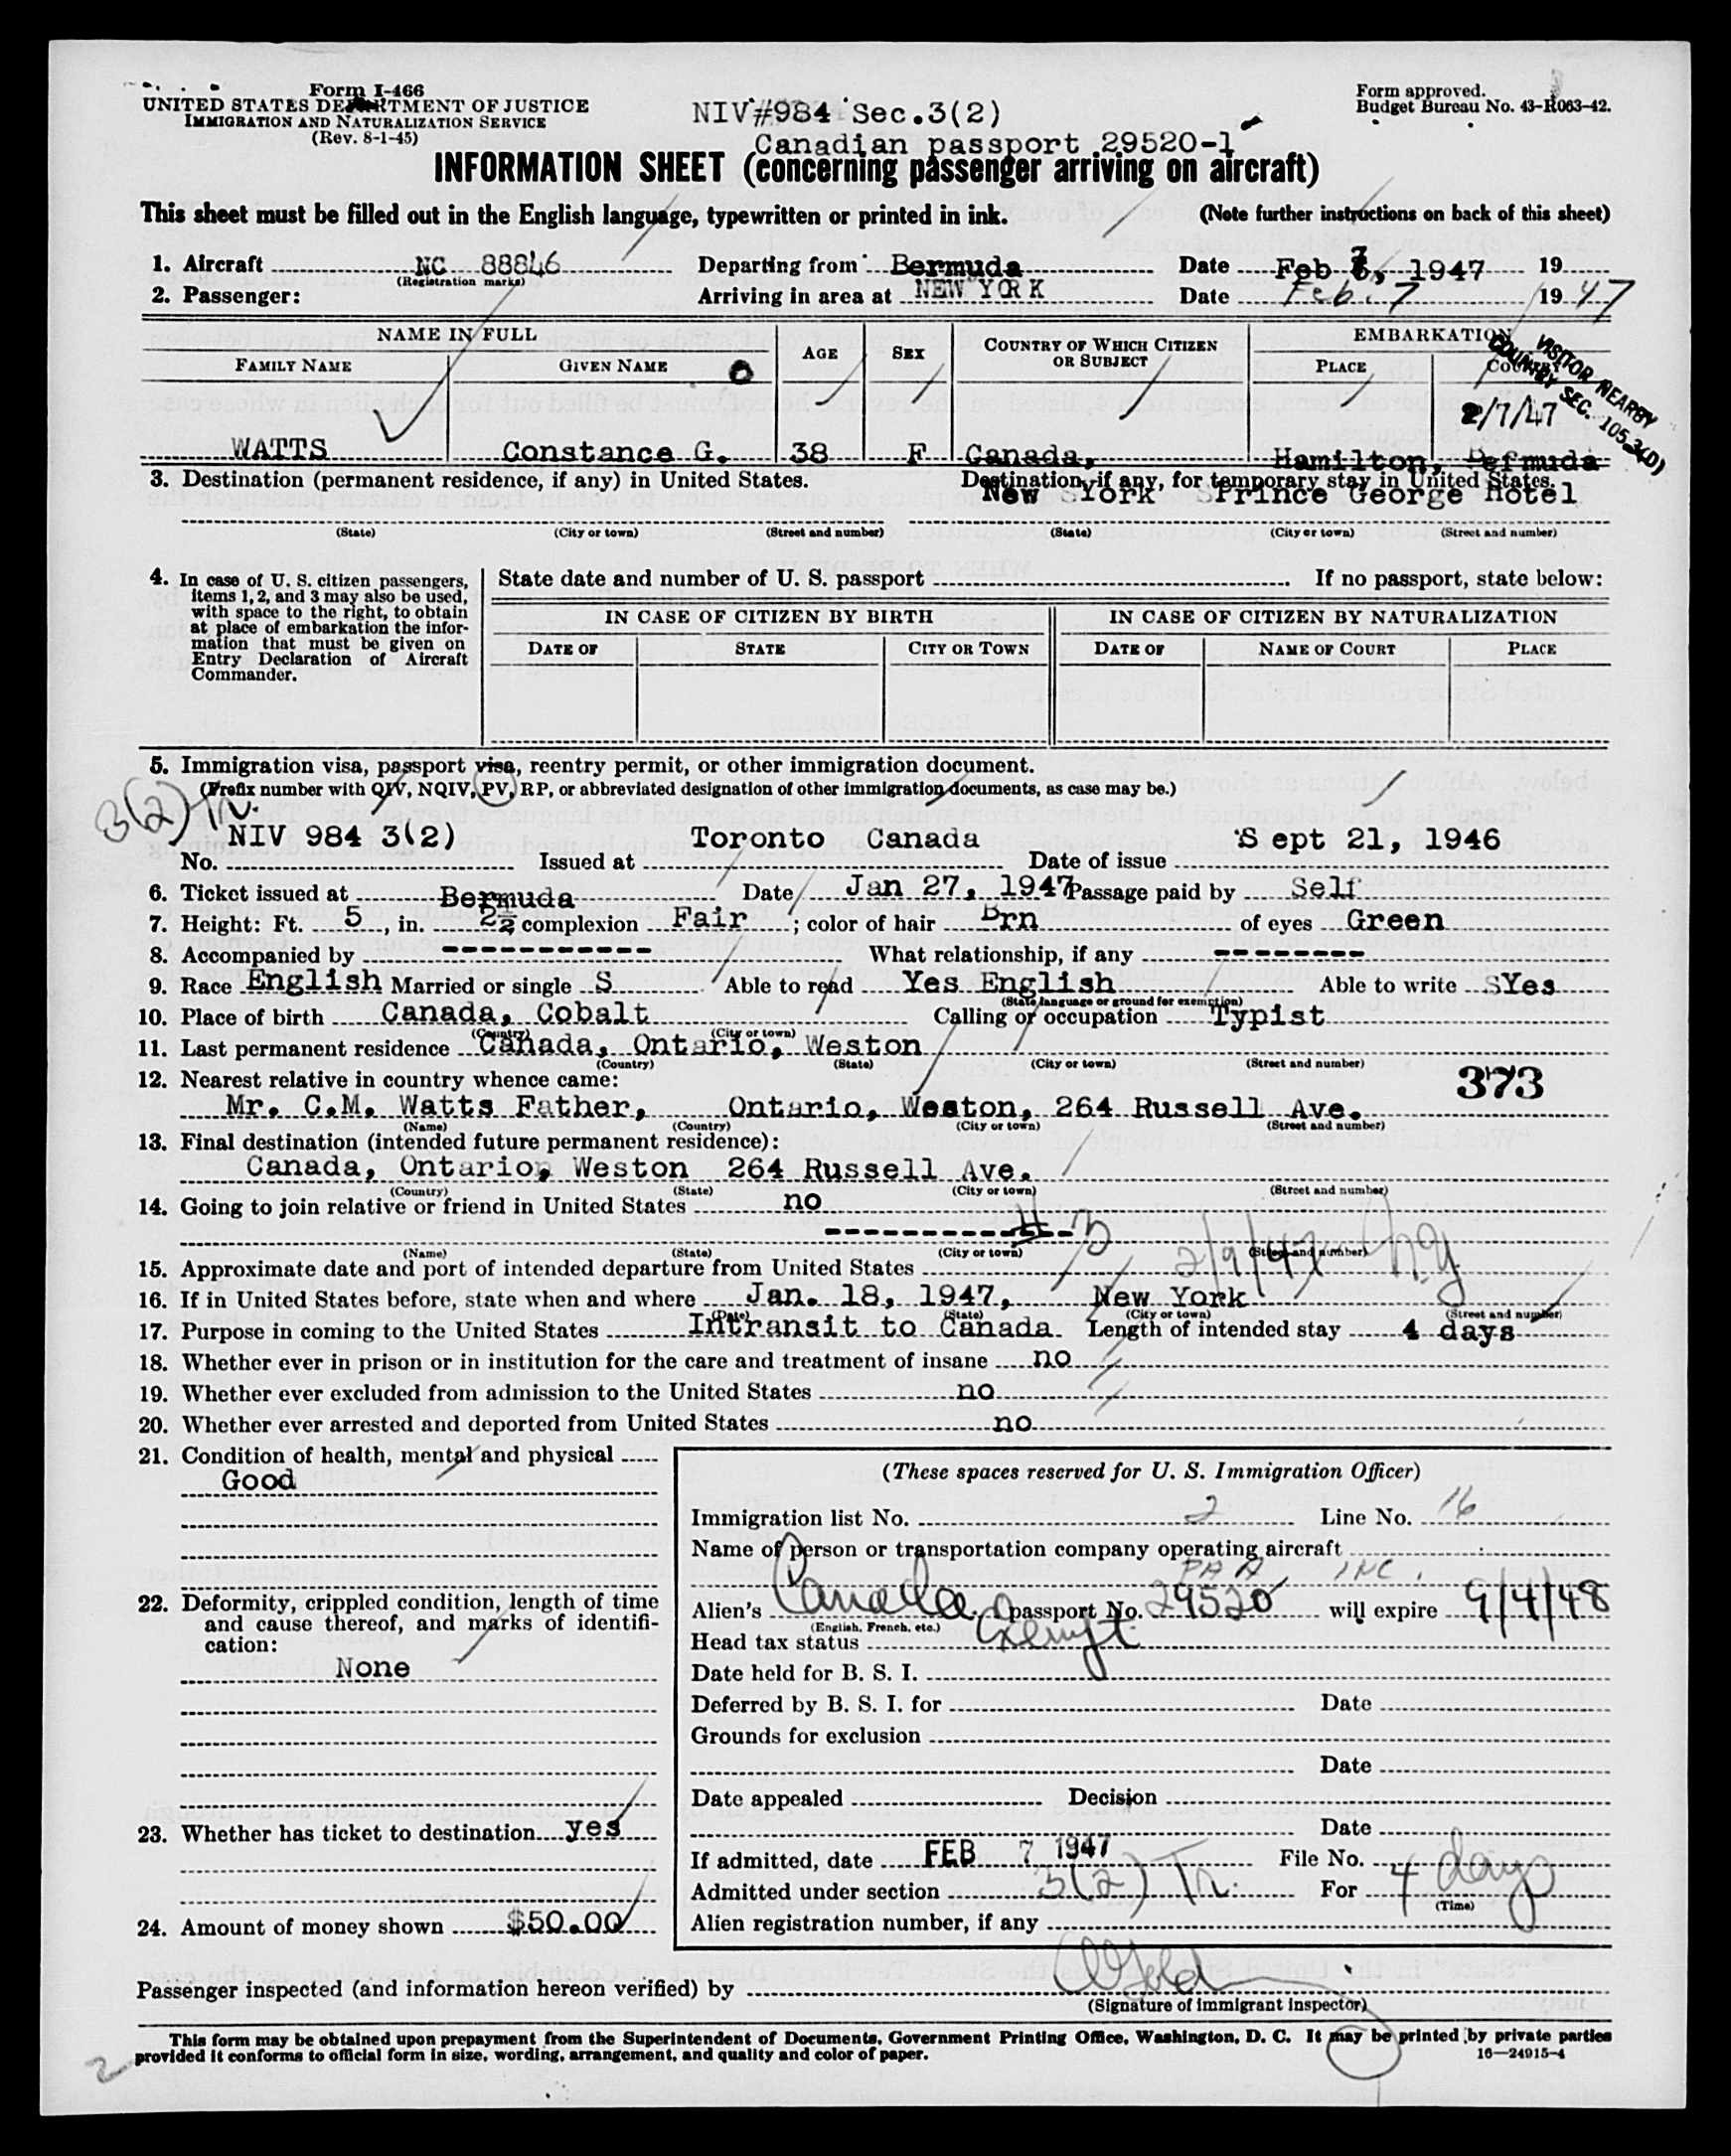 Form I-466
UNITED STATES DEPARTMENT OF JUSTICE
IMMIGRATION AND NATURALIZATION SERVICE
(Rev. 8-1-45)
NIV #984 Sec.3(2)
Canadian passport 29520-1
Form approved.
Budget Bureau No. 43-R063-42.
INFORMATION SHEET (concerning passenger arriving on aircraft)
This sheet must be filled out in the English language, typewritten or printed in ink. (Note further instructions on back of this sheet)
1. Aircraft NC 88846 Departing from Bermuda Date Feb 1947 19
(Registration marks)
2. Passenger: Arriving in area at NEW YORK Date Feb. 7 1947
NAME IN FULL AGE SEX COUNTRY OF WHICH CITIZEN OR SUBJECT EMBARKATION
FAMILY NAME GIVEN NAME PLACE COUNTRY
VISITOR NEARBY
COUNTRY SEC. 105.3(D)
2/7/47
WATTS Constance G. 38 F Canada, Hamilton, Bermuda
3. Destination (permanent residence, if any) in United States. Destination, if any, for temporary stay in United States.
New York Prince George Hotel
(State) (City or town) (Street and number) (State) (City or town) (Street and number)
4. In case of U. S. citizen passengers, items 1, 2, and 3 may also be used, with space to the right, to obtain at place of embarkation the information that must be given on Entry Declaration of Aircraft Commander.
State date and number of U. S. passport If no passport, state below:
IN CASE OF CITIZEN BY BIRTH IN CASE OF CITIZEN BY NATURALIZATION
DATE OF STATE CITY OR TOWN DATE OF NAME OF COURT PLACE
5. Immigration visa, passport visa, reentry permit, or other immigration document.
(Prefix number with QIV, NQIV, PV, RP, or abbreviated designation of other immigration documents, as case may be.)
3(2) Tr.
NIV 984 3(2) Toronto Canada Sept 21, 1946
No. Issued at Date of issue
6. Ticket issued at Bermuda Date Jan 27, 1947 Passage paid by Self
7. Height: Ft. 5, in. 2½ complexion Fair; color of hair Brn of eyes Green
8. Accompanied by ---------- What relationship, if any --------
9. Race English Married or single S Able to read Yes English Able to write Yes
(State language or ground for exemption)
10. Place of birth Canada, Cobalt Calling or occupation Typist
(Country) (City or town)
11. Last permanent residence Canada, Ontario, Weston
(Country) (State) (City or town) (Street and number)
12. Nearest relative in country whence came: 373
Mr. C.M. Watts Father, Ontario, Weston, 264 Russell Ave.
(Name) (Country) (City or town) (Street and number)
13. Final destination (intended future permanent residence):
Canada, Ontario, Weston 264 Russell Ave.
(Country) (State) (City or town) (Street and number)
14. Going to join relative or friend in United States no
(Name) (State) (City or town) (Street and number)
15. Approximate date and port of intended departure from United States 2/9/47 ny
16. If in United States before, state when and where Jan. 18, 1947, New York
(Date) (State) (City or town) (Street and number)
17. Purpose in coming to the United States Intransit to Canada Length of intended stay 4 days
18. Whether ever in prison or in institution for the care and treatment of insane no
19. Whether ever excluded from admission to the United States no
20. Whether ever arrested and deported from United States no
21. Condition of health, mental and physical
Good
22. Deformity, crippled condition, length of time and cause thereof, and marks of identification:
None
23. Whether has ticket to destination yes
24. Amount of money shown $50.00
(These spaces reserved for U. S. Immigration Officer)
Immigration list No. 2 Line No. 16
Name of person or transportation company operating aircraft
PAA INC.
Alien's Canada passport No. 29520 will expire 9/4/48
(English, French, etc.)
Head tax status Exempt
Date held for B. S. I.
Deferred by B. S. I. for Date
Grounds for exclusion
Date
Date appealed Decision
Date
If admitted, date FEB 7 1947 File No.
Admitted under section 3(2) Tr. For 4 days
(Time)
Alien registration number, if any
Passenger inspected (and information hereon verified) by
(Signature of immigrant inspector)
This form may be obtained upon prepayment from the Superintendent of Documents, Government Printing Office, Washington, D. C. It may be printed by private parties
provided it conforms to official form in size, wording, arrangement, and quality and color of paper. 16—24915-4
2